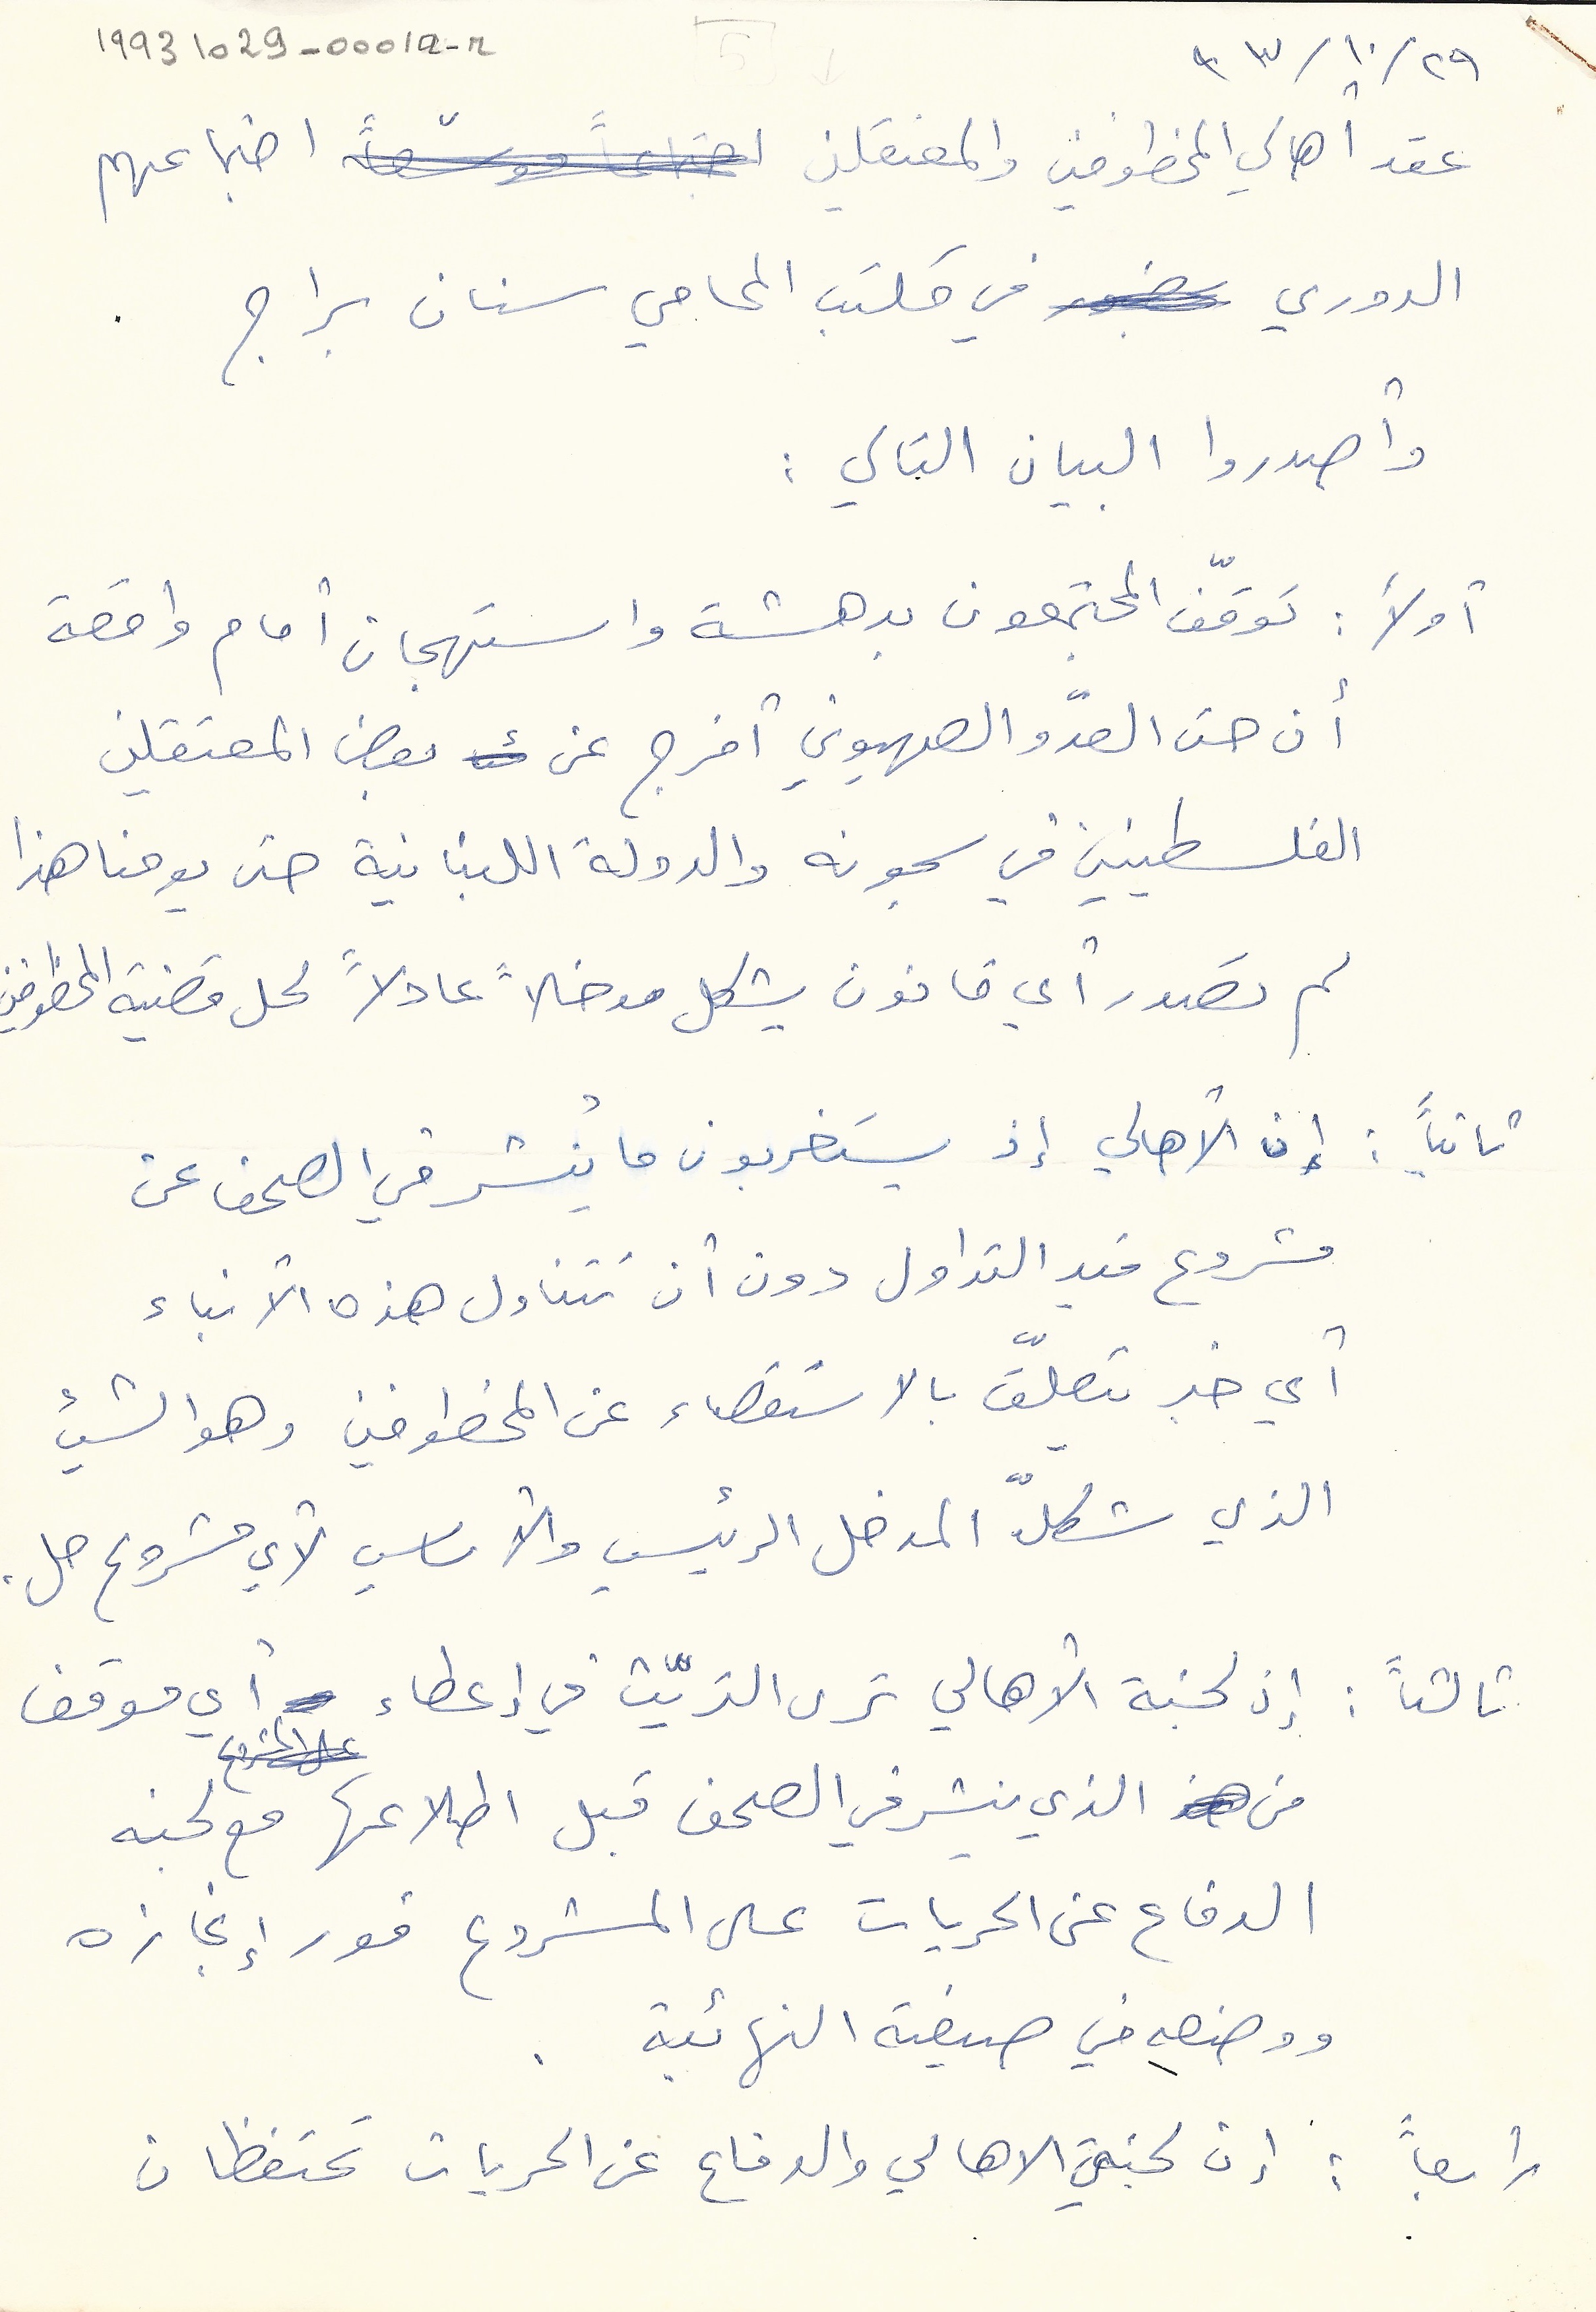 19931029-0001a-r
٢٩/١٠/٩٣
عقد أهالي المخطوفين والمعتقلين اجتماعاً موسّعاً اجتماعهم
الدوري بحضور في مكتب المحامي سنان براج .
وأصدروا البيان التالي :
أولاً : توقّف المجتمعون بدهشة واستهجان أمام واقعة
أن حتى العدّو الصهيوني أفرج عن بعض المعتقلين
الفلسطينيين في سجونه والدولة اللبنانية حتى يومنا هذا
لم تصدر أي قانون يشكل مدخلاً عادلاً لحل قضية المخطوفين
ثانياً : إن الأهالي إذ يستغربون ما يُنشر في الصحف عن
مشروع قيد التداول دون أن تتناول هذه الأنباء
أي خبر يتعلّق بالاستقصاء عن المخطوفين وهو الشيئ
الذي شكلّ المدخل الرئيسي والأساسي لأي مشروع حل .
ثالثاً : إن لجنة الأهالي ترى التريّث في إعطاء أي موقف
على المشروع
من هذ الذي ينشر في الصحف قبل اطلاعها مع لجنه
الدفاع عن الحريات على المشروع فور إنجازه
ووضعه في صيغته النهائية .
رابعاً : إن لجنتي الاهالي والدفاع عن الحريات تحتفظان